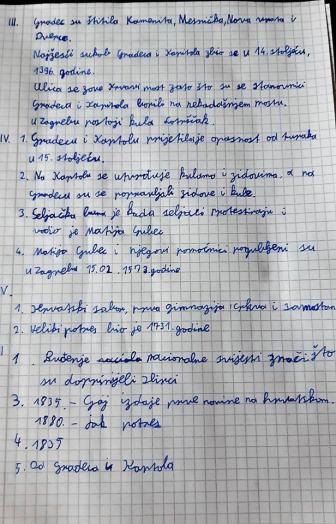 III. Gradec su štitila Kamenita, Mesnička, Nova vrata i
Dverce.
Najžešći sukob Gradeca i Kaptola zbio se u 14. stoljeću,
1396. godine.
Ulica se zove Krvavi most zato što su se stanovnici
Gradeca i Kaptola borili na nekadašnjem mostu.
U Zagrebu postoji kula Lotrščak.
IV. 1. Gradecu i Kaptolu prijetila je opasnost od turaka
u 15. stoljeću.
2. Na Kaptolu se utvrđuje kulama i zidovima, a na
Gradecu su se popravljali zidove i kule.
3. Seljačka buna je kada seljaci protestiraju i
vodio je Matija Gubec
4. Matija Gubec i njegovi pomoćnici pogubljeni su
u Zagrebu 15.02. 1573. godine
V.
1. Hrvatski sabor, prva gimnazija, crkva i samostan
2. Veliki potres bio je 1731. godine
I
1. Buđenje nacionalne svijesti znači što
su doprinjeli Ilirci
3. 1835. - Gaj izdaje prve novine na hrvatskom.
1880. - jak potres
4. 1835
5. Od Gradeca i Kaptola